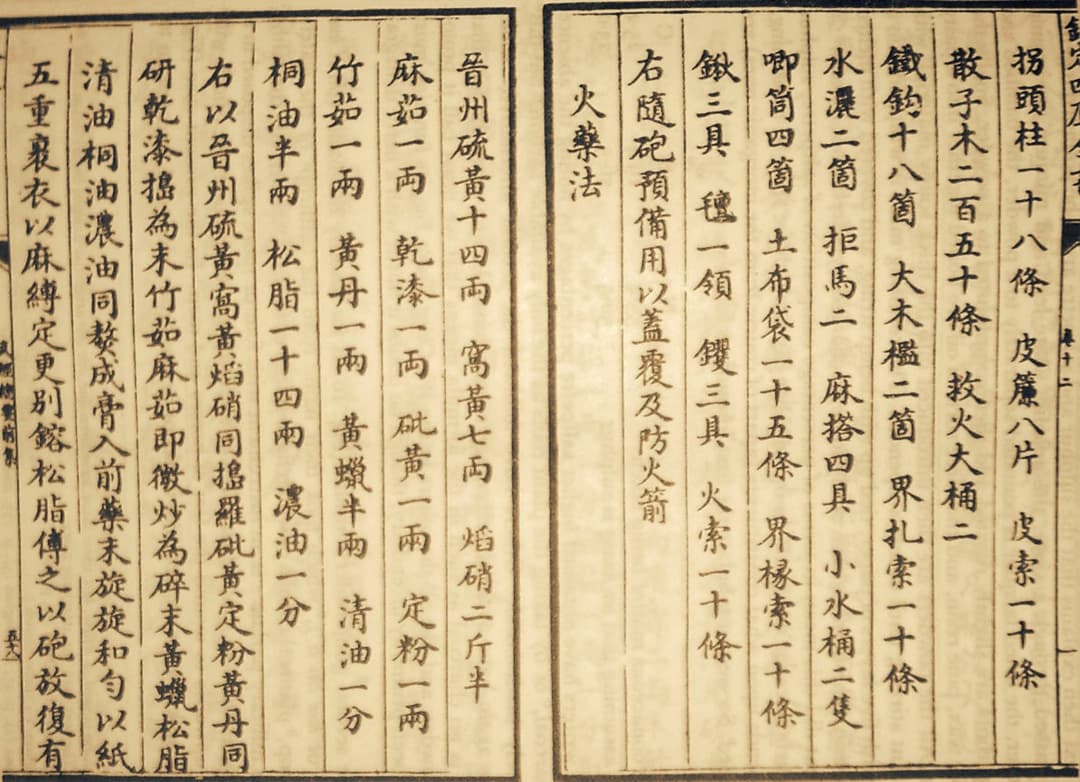 欽定四庫全書
卷十二
拐頭柱一十八條 皮簾八片 皮索一十條
散子木二百五十條 救火大桶二
鐵鈎十八箇 大木檻二箇 界扎索一十條
水濃二箇 拒馬二 麻搭四具 小水桶二隻
唧筒四箇 土布袋一十五條 界椽索一十條
鍬三具 氊一領 钁三具 火索一十條
右隨砲預備用以蓋覆及防火箭
火藥法
晉州硫黃十四兩 窩黃七兩 焰硝二斤半
麻茹一兩 乾漆一兩 砒黃一兩 定粉一兩
竹茹一兩 黃丹一兩 黃蠟半兩 清油一分
桐油半兩 松脂一十四兩 濃油一分
右以晉州硫黃窩黃焰硝同搗羅砒黃定粉黃丹同
研乾漆搗為末竹茹麻茹即微炒為碎末黃蠟松脂
清油桐油濃油同熬成膏入前藥末旋旋和勻以紙
五重裹衣以麻縛定更別鎔松脂傅之以砲放復有
武經總要前集